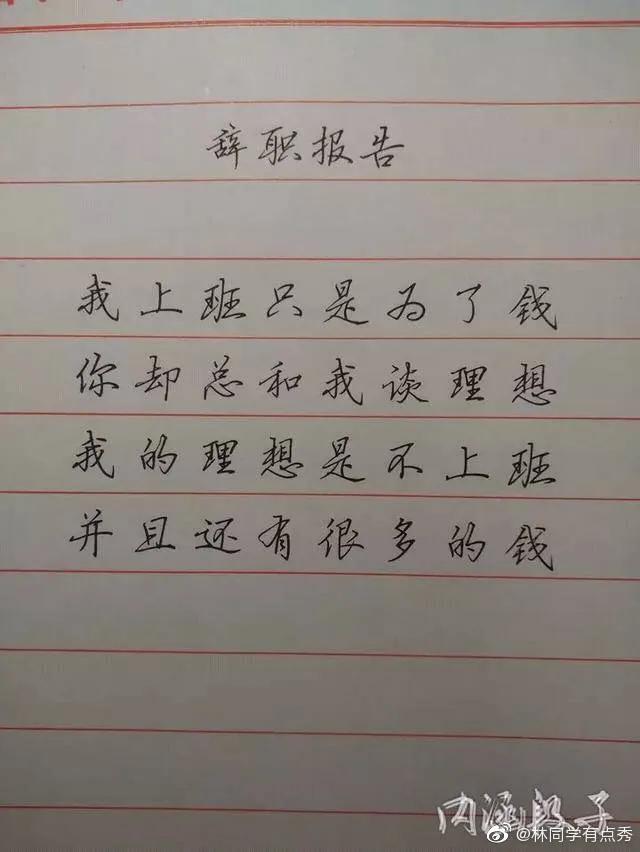 辞职报告
我上班只是为了钱
你却总和我谈理想
我的理想是不上班
并且还有很多的钱
内涵段子
@林同学有点秀